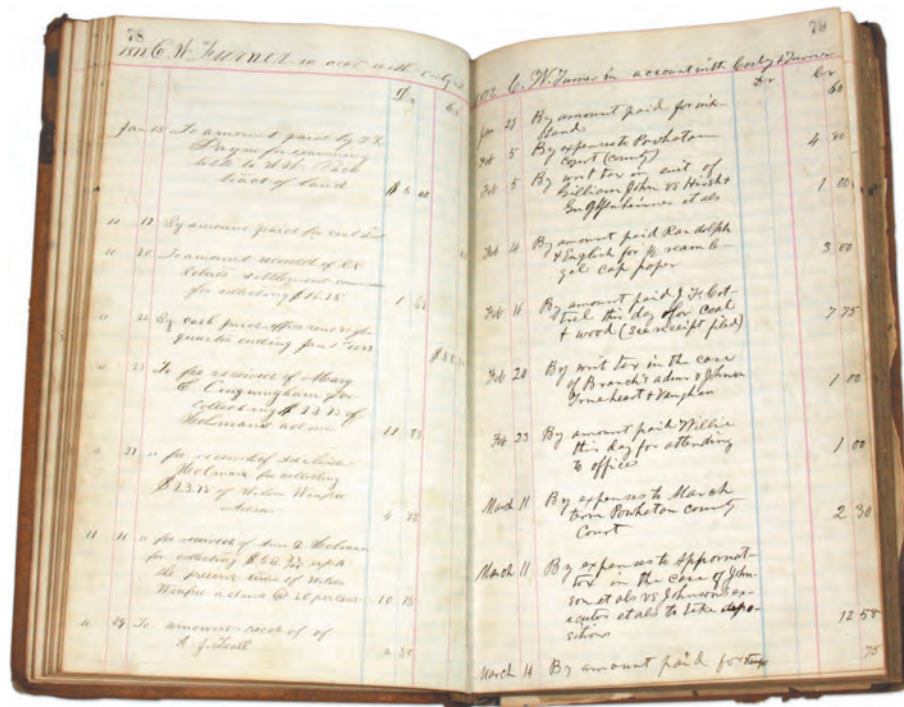 78
1872 C. W. Turner in acct with Cosby &
Dr
Jan 15 To amount paid by
Payne for examining
title to
tract of land $ 5 00
" 17 By amount paid for coal
" 20 To amount received of
Roberts settlement
for collecting $16.25 1 62
" 22 By cash paid office rent for
quarter ending Jan 1st
" 23 To fee received of Mary
E. Cunningham for
collecting $23.75 of
Holmans admr 11 83
" 23 " fee received of
Holman for collecting
$23.75 of Wilson Winfree
Admr 4
" " " fee received of Ann D. Holman
for collecting
the present time of Wilson
Winfree admr @ 20 percent 10 75
" 29 To amount recd of
A. J. 2 50
79
1872 C. W. Turner in account with Cosby & Turner
Dr Cr
Jan 23 By amount paid for ink- 60
stand
Feb 5 By expenses to Powhatan
court (county) 4 80
Feb 5 By writ tax in suit of
Gilliam John vs Hirsh &
Guggenheimer et als 1 00
Feb 14 By amount paid Randolph
& English for ½ ream le-
gal cap paper 3 00
Feb 16 By amount paid J. H. Cot-
trel this day for coal
& wood (see receipt filed) 7 75
Feb 20 By writ tax in the case
of Branch's admr & Johnson
Trueheart & Vaughan 1 00
Feb 23 By amount paid Willie
this day for attending
to office 1 00
March 11 By expenses to March
term Powhatan county
Court 2 30
March 11 By expenses to Appomat-
tox in the case of John-
son et als vs Johnson's ex-
ecutors et als to take depo-
sitions 12 58
March 14 By amount paid for stamps 75